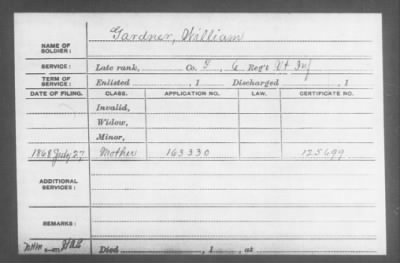 NAME OF SOLDIER: Gardner, William
SERVICE: Late rank, Co. F, 6 Reg't Vt Inf
TERM OF SERVICE: Enlisted , 1 Discharged , 1
DATE OF FILING. CLASS. APPLICATION NO. LAW. CERTIFICATE NO.
Invalid,
Widow,
Minor,
1868 July 27 Mother 163330 125699
ADDITIONAL SERVICES:
REMARKS:
Died , 1 , at